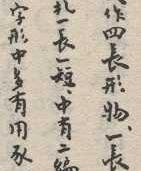 作四長形物、一長
札一長一短、中有二編
字形中多有用豕